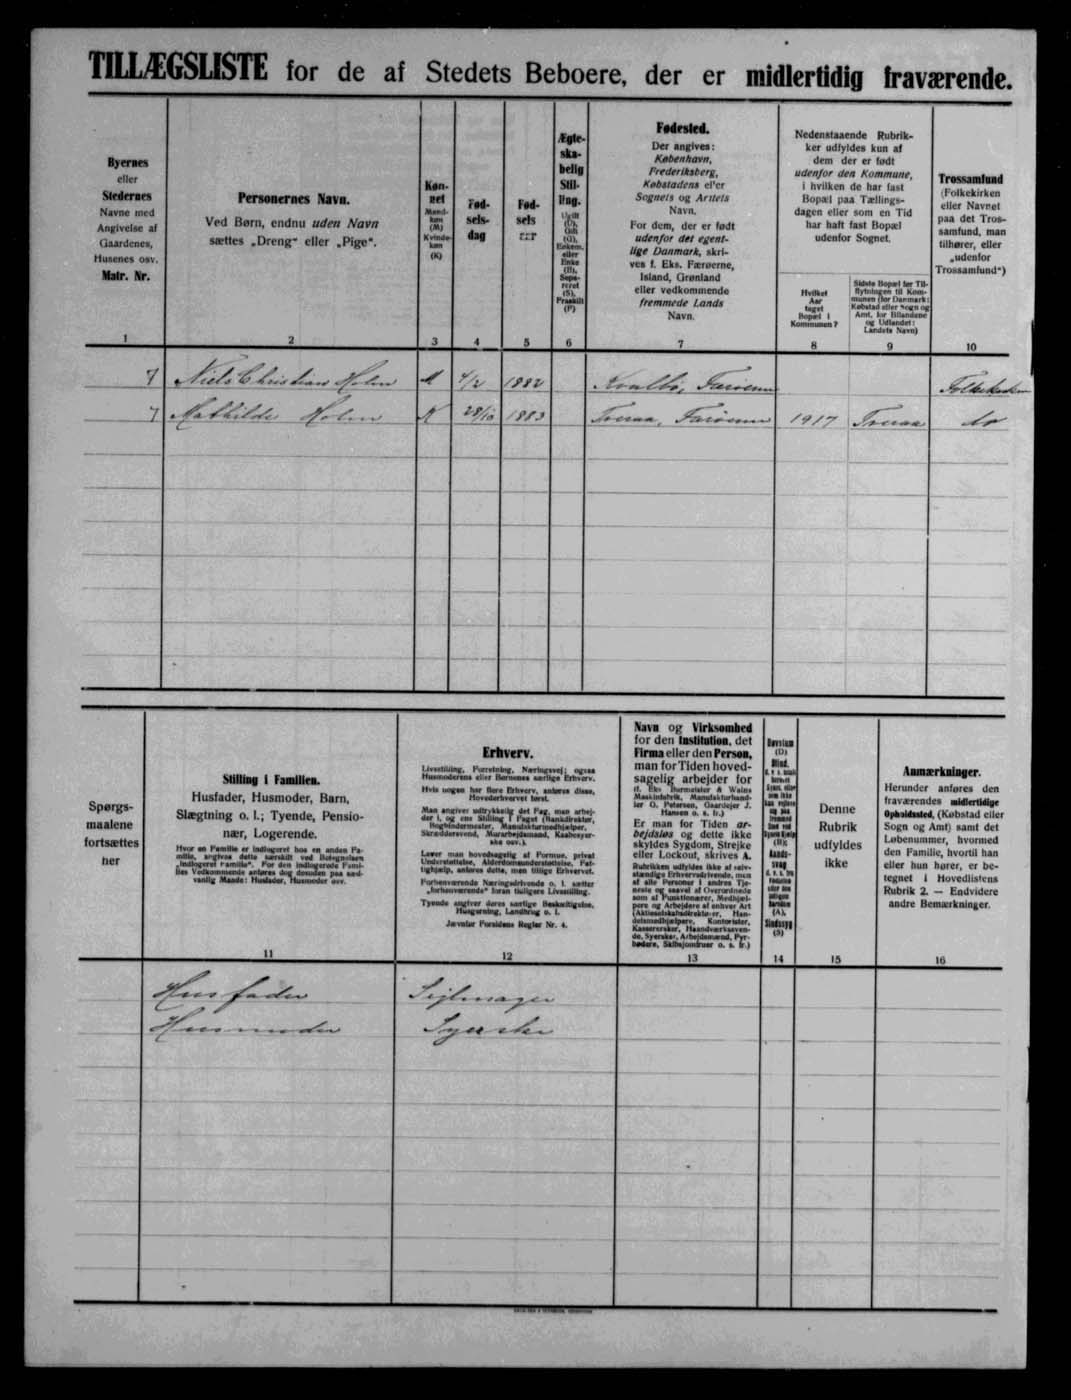 TILLÆGSLISTE for de af Stedets Beboere, der er midlertidig fraværende.
Byernes
eller
Stedernes
Navne med
Angivelse af
Gaardenes,
Husenes osv.
Matr. Nr.
1
Personernes Navn.
Ved Børn, endnu uden Navn
sættes „Dreng" eller „Pige".
2
Køn-
net
Mand-
køn
(M)
Kvinde-
køn
(K)
3
Fød-
sels-
dag
4
Fød-
sels
aar
5
Ægte-
ska-
belig
Stil-
ling.
Ugift
(U),
Gift
(G),
Enkem.
eller
Enke
(E),
Sepa-
reret
(S),
Fraskilt
(F)
6
Fødested.
Der angives:
København,
Frederiksberg,
Købstadens eller
Sognets og Amtets
Navn.
For dem, der er født
udenfor det egent-
lige Danmark, skri-
ves f. Eks. Færøerne,
Island, Grønland
eller vedkommende
fremmede Lands
Navn.
7
Nedenstaaende Rubrik-
ker udfyldes kun af
dem der er født
udenfor den Kommune,
i hvilken de har fast
Bopæl paa Tællings-
dagen eller som en Tid
har haft fast Bopæl
udenfor Sognet.
Hvilket
Aar
taget
Bopæl i
Kommunen?
8
Sidste Bopæl før Til-
flytningen til Kom-
munen (for Danmark:
Købstad eller Sogn og
Amt, for Bilandene
og Udlandet:
Landets Navn)
9
Trossamfund
(Folkekirken
eller Navnet
paa det Tros-
samfund, man
tilhører, eller
„udenfor
Trossamfund")
10
7 Niels Christian Holm M 4/2 1882 Kvalbø, Færøerne Folkekirken
7 Mathilde Holm K 28/10 1883 Tveraa, Færøerne 1917 Tveraa do
Spørgs-
maalene
fortsættes
her
Stilling i Familien.
Husfader, Husmoder, Barn,
Slægtning o. l.; Tyende, Pensio-
nær, Logerende.
Hvor en Familie er indlogeret hos en anden Fa-
milie, angives dette særskilt ved Betegnelsen
„indlogeret Familie". For den indlogerede Fami-
lies Vedkommende anføres dog desuden paa sæd-
vanlig Maade: Husfader, Husmoder osv.
11
Erhverv.
Livsstilling, Forretning, Næringsvej; ogsaa
Husmoderens eller Børnenes særlige Erhverv.
Hvis nogen har flere Erhverv, anføres disse,
Hovederhvervet først.
Man angiver udtrykkelig det Fag, man arbej-
der i, og ens Stilling i Faget (Bankdirektør,
Bogbindermester, Manufakturmedhjælper,
Skræddersvend, Murarbejdsmand, Kaabesyer-
ske osv.).
Lever man hovedsagelig af Formue, privat
Understøttelse, Alderdomsunderstøttelse, Fat-
tighjælp, anføres dette, men tillige Erhvervet.
Forhenværende Næringsdrivende o. l. sætter
„forhenværende" foran tidligere Livsstilling.
Tyende angiver deres særlige Beskæftigelse,
Husgerning, Landbrug o. l.
Jævnfør Forsidens Regler Nr. 4.
12
Navn og Virksomhed
for den Institution, det
Firma eller den Person,
man for Tiden hoved-
sagelig arbejder for
(f. Eks Burmeister & Wains
Maskinfabrik, Manufakturhand-
ler O. Petersen, Gaardejer J.
Hansen o. s. fr.)
Er man for Tiden ar-
bejdsløs og dette ikke
skyldes Sygdom, Strejke
eller Lockout, skrives A.
Rubrikken udfyldes ikke af selv-
stændige Erhvervsdrivende, men
af alle Personer i andres Tje-
neste og saavel af Overordnede
som af Funktionærer, Medhjæl-
pere og Arbejdere af enhver Art
(Aktieselskabsdirektører, Han-
delsmedhjælpere, Kontorister,
Kassererersker, Haandværkssven-
de, Syersker, Arbejdsmænd, Fyr-
bødere, Skibsjomfruer o. s. fr.)
13
Døvstum
(D)
Blind,
(B);
Aands-
svag
(A),
Sindssyg
(S)
14
Denne
Rubrik
udfyldes
ikke
15
Anmærkninger.
Herunder anføres den
fraværendes midlertidige
Opholdssted, (Købstad eller
Sogn og Amt) samt det
Løbenummer, hvormed
den Familie, hvortil han
eller hun hører, er be-
tegnet i Hovedlistens
Rubrik 2. — Endvidere
andre Bemærkninger.
16
Husfader Sejlmager
Husmoder Syerske